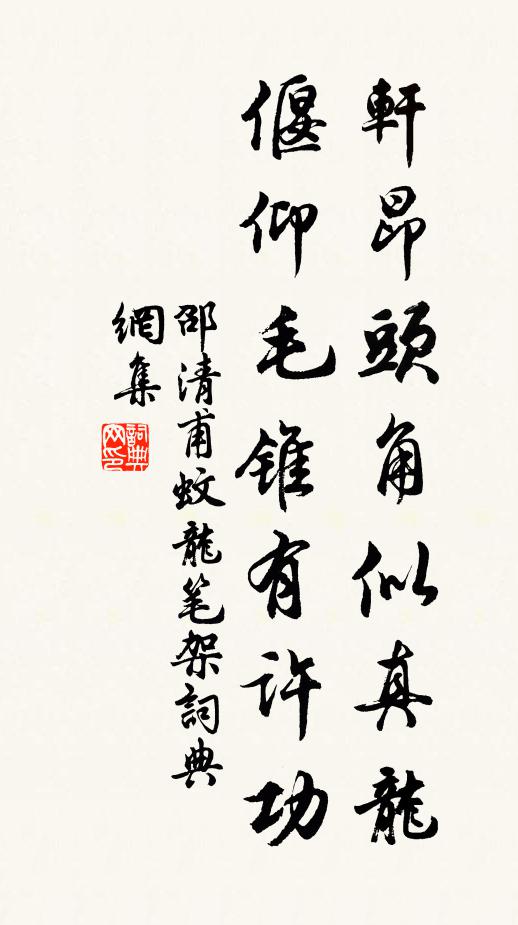 軒昂頭角似真龍
偃仰毛錐有許功
邵清甫蚊龍笔架詞典
網集
詞典
网印